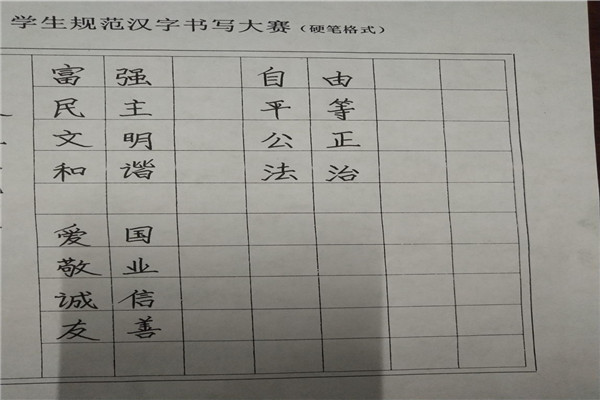 学生规范汉字书写大赛（硬笔格式）
富强 自由
民主 平等
文明 公正
和谐 法治
爱国
敬业
诚信
友善